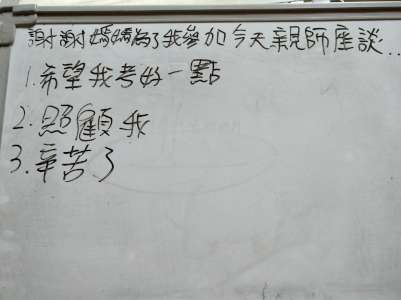 謝謝媽媽為了我參加今天親師座談..
1.希望我考好一點
2.照顧我
3.辛苦了